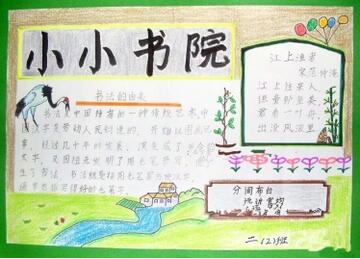 小小书院
书法的由来
书法是中国特有的一种传统艺术中
国汉字是劳动人民创造的，开始以图画记
事，经过几千年的发展，演变成了当今的
文字，又因祖先发明了用毛笔书写，便产
生了书法，
江上渔者
宋范仲淹
江上往来人，
但爱鲈鱼美。
君看一叶舟，
出没风波里。
分间布白
疏讲字均
二(2)班